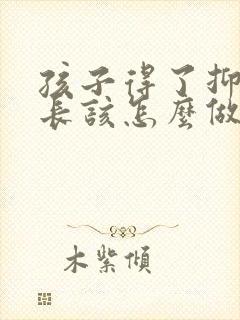 孩子得了抑
長該怎麼做
木紫傾